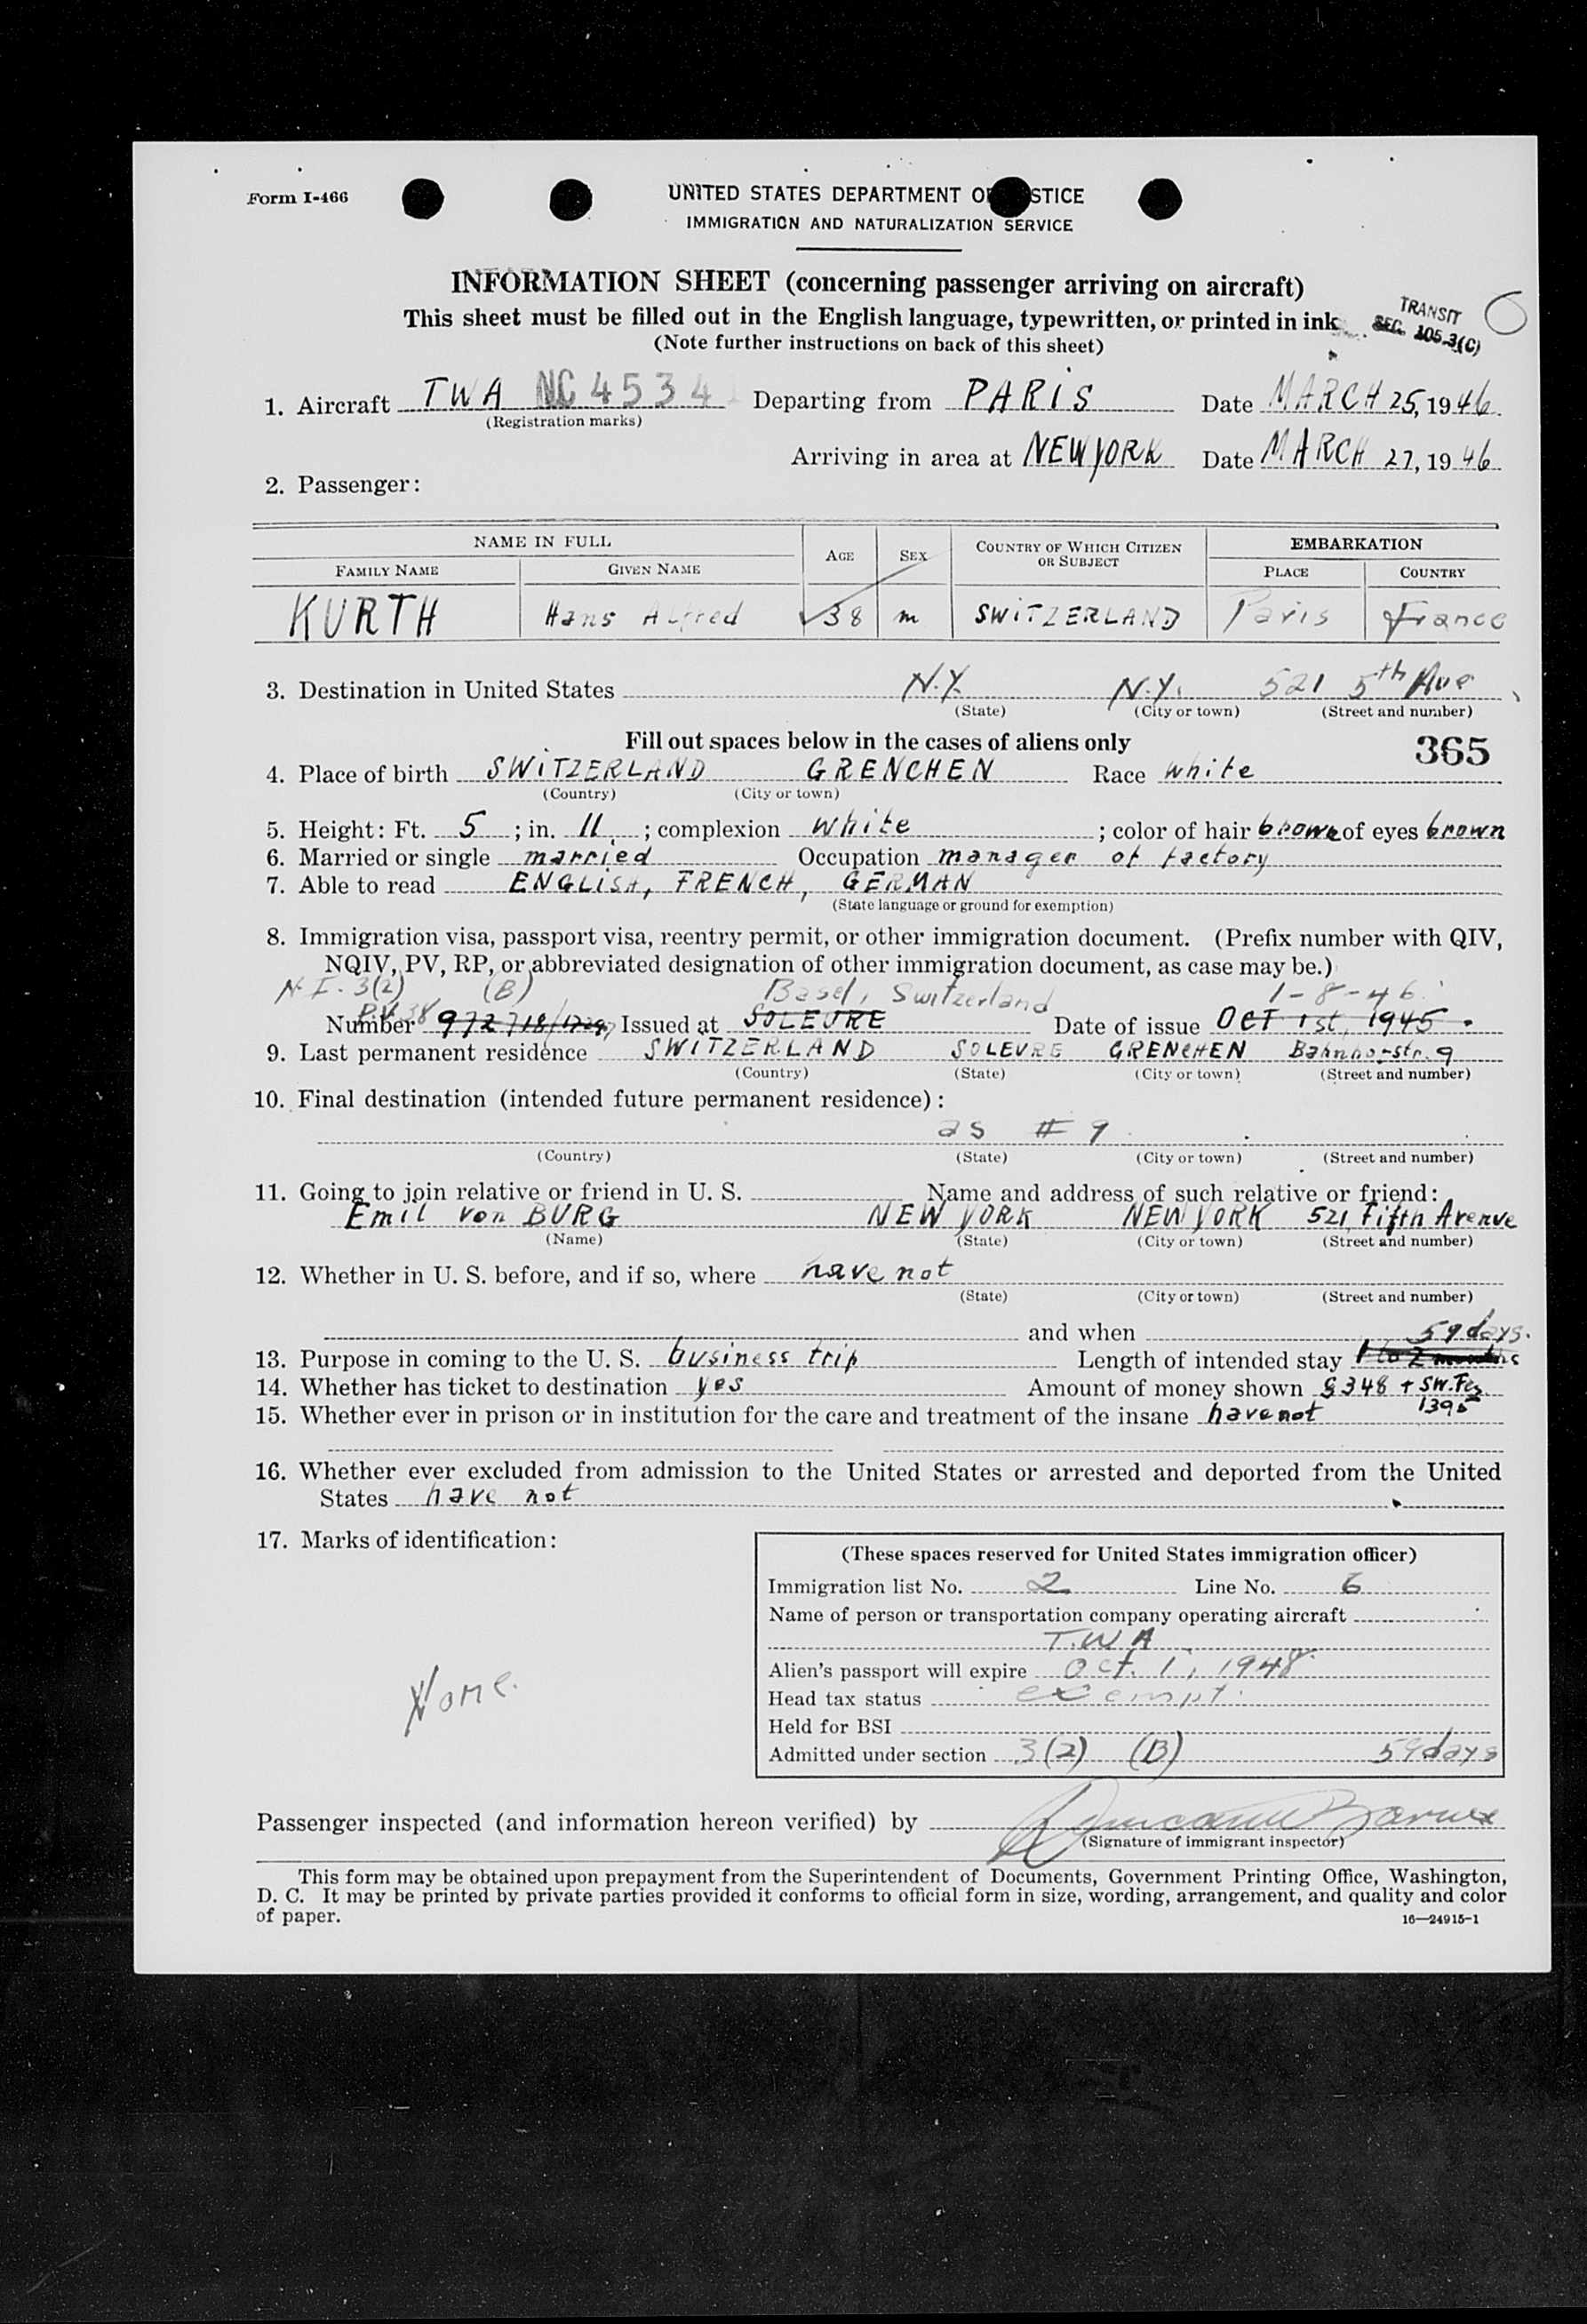 Form I-466
UNITED STATES DEPARTMENT OF JUSTICE
IMMIGRATION AND NATURALIZATION SERVICE
INFORMATION SHEET (concerning passenger arriving on aircraft)
This sheet must be filled out in the English language, typewritten, or printed in ink
(Note further instructions on back of this sheet)
TRANSIT
SEC. 105.3(C)
1. Aircraft TWA NC 4534 Departing from PARIS Date MARCH 25, 1946
(Registration marks)
Arriving in area at NEW YORK Date MARCH 27, 1946
2. Passenger:
NAME IN FULL AGE SEX COUNTRY OF WHICH CITIZEN OR SUBJECT EMBARKATION
FAMILY NAME GIVEN NAME PLACE COUNTRY
KURTH Hans Alfred 38 m SWITZERLAND Paris France
3. Destination in United States N.Y. N.Y. 521 5th Ave
(State) (City or town) (Street and number)
Fill out spaces below in the cases of aliens only
365
4. Place of birth SWITZERLAND GRENCHEN Race white
(Country) (City or town)
5. Height: Ft. 5; in. 11; complexion white; color of hair brown of eyes brown
6. Married or single married Occupation manager of factory
7. Able to read ENGLISH, FRENCH, GERMAN
(State language or ground for exemption)
8. Immigration visa, passport visa, reentry permit, or other immigration document. (Prefix number with QIV,
NQIV, PV, RP, or abbreviated designation of other immigration document, as case may be.)
N.I. 3(2) (B) Basel, Switzerland 1-8-46
Number P.V. 38 972718 Issued at SOLEURE Date of issue OCT 1st, 1945
9. Last permanent residence SWITZERLAND SOLEURE GRENCHEN Bahnhofstr. 9
(Country) (State) (City or town) (Street and number)
10. Final destination (intended future permanent residence):
as # 9
(Country) (State) (City or town) (Street and number)
11. Going to join relative or friend in U. S. Name and address of such relative or friend:
Emil von BURG NEW YORK NEW YORK 521, Fifth Avenue
(Name) (State) (City or town) (Street and number)
12. Whether in U. S. before, and if so, where have not
(State) (City or town) (Street and number)
and when
59 days.
13. Purpose in coming to the U. S. business trip Length of intended stay 1 to 2 months
14. Whether has ticket to destination yes Amount of money shown $348 + SW. Frs
1395
15. Whether ever in prison or in institution for the care and treatment of the insane have not
16. Whether ever excluded from admission to the United States or arrested and deported from the United
States have not
17. Marks of identification:
None.
(These spaces reserved for United States immigration officer)
Immigration list No. 2 Line No. 6
Name of person or transportation company operating aircraft
T.W.A
Alien's passport will expire Oct. 1, 1948
Head tax status exempt.
Held for BSI
Admitted under section 3(2) (B) 59 days
Passenger inspected (and information hereon verified) by
(Signature of immigrant inspector)
This form may be obtained upon prepayment from the Superintendent of Documents, Government Printing Office, Washington,
D. C. It may be printed by private parties provided it conforms to official form in size, wording, arrangement, and quality and color
of paper.
16—24915-1